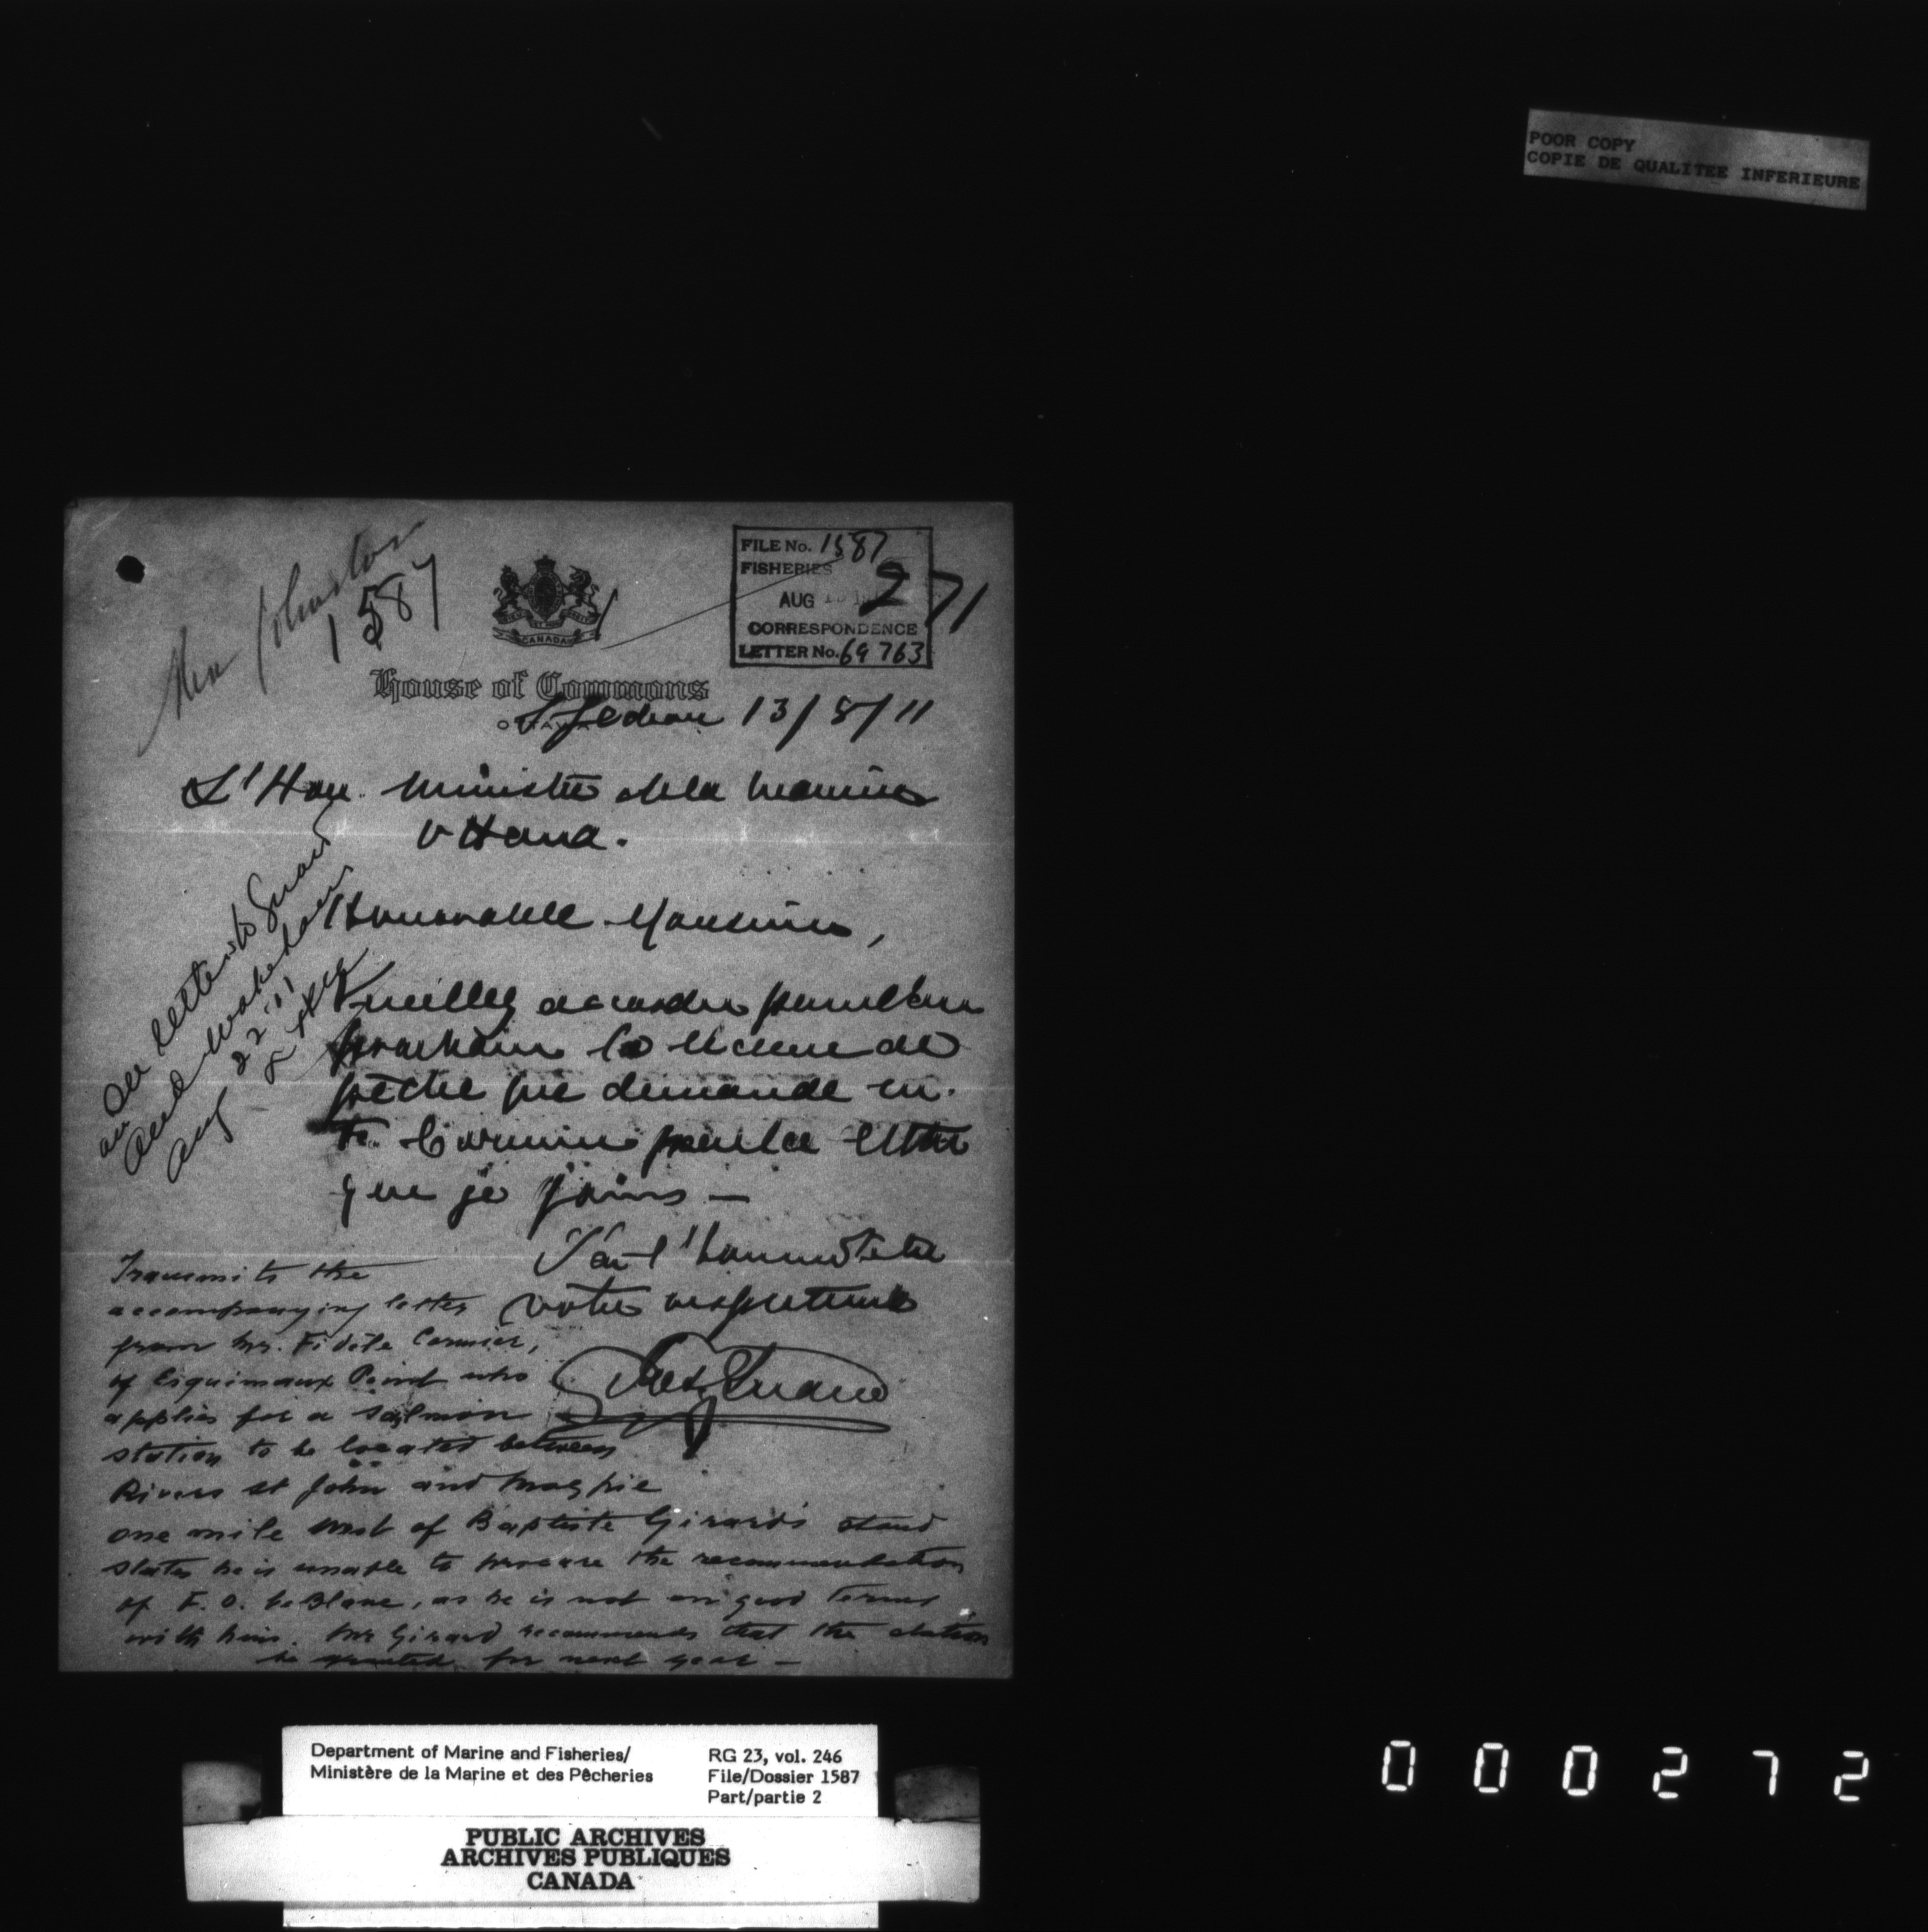 POOR COPY
COPIE DE QUALITEE INFERIEURE
Mr Johnston
1587
FILE No. 1587
FISHERIES
271
AUG
CORRESPONDENCE
LETTER No. 69763
CANADA
House of Commons
OTTAWA
St Gedeon 13/8/11
L'Hon. Ministre de la Marine
Ottawa.
Honorable Monsieur,
Veuillez accorder pour l'an
prochain la licence de
pêche que demande M.
F. Cormier par la lettre
que je joins —
J'ai l'honneur d'être
votre respectueux
Jos Girard
an letter to Girard
and Wakeham
Aug 22 '11
Transmits the
accompanying letter
from Mr. Fidèle Cormier,
of Esquimaux Point who
applies for a salmon
station to be located between
Rivers St John and Magpie
one mile West of Baptiste Girard's stand
states he is unable to procure the recommendation
of F. O. LeBlanc, as he is not on good terms
with him. Mr Girard recommends that the station
be granted for next year —
Department of Marine and Fisheries/
Ministère de la Marine et des Pêcheries
RG 23, vol. 246
File/Dossier 1587
Part/partie 2
PUBLIC ARCHIVES
ARCHIVES PUBLIQUES
CANADA
000272